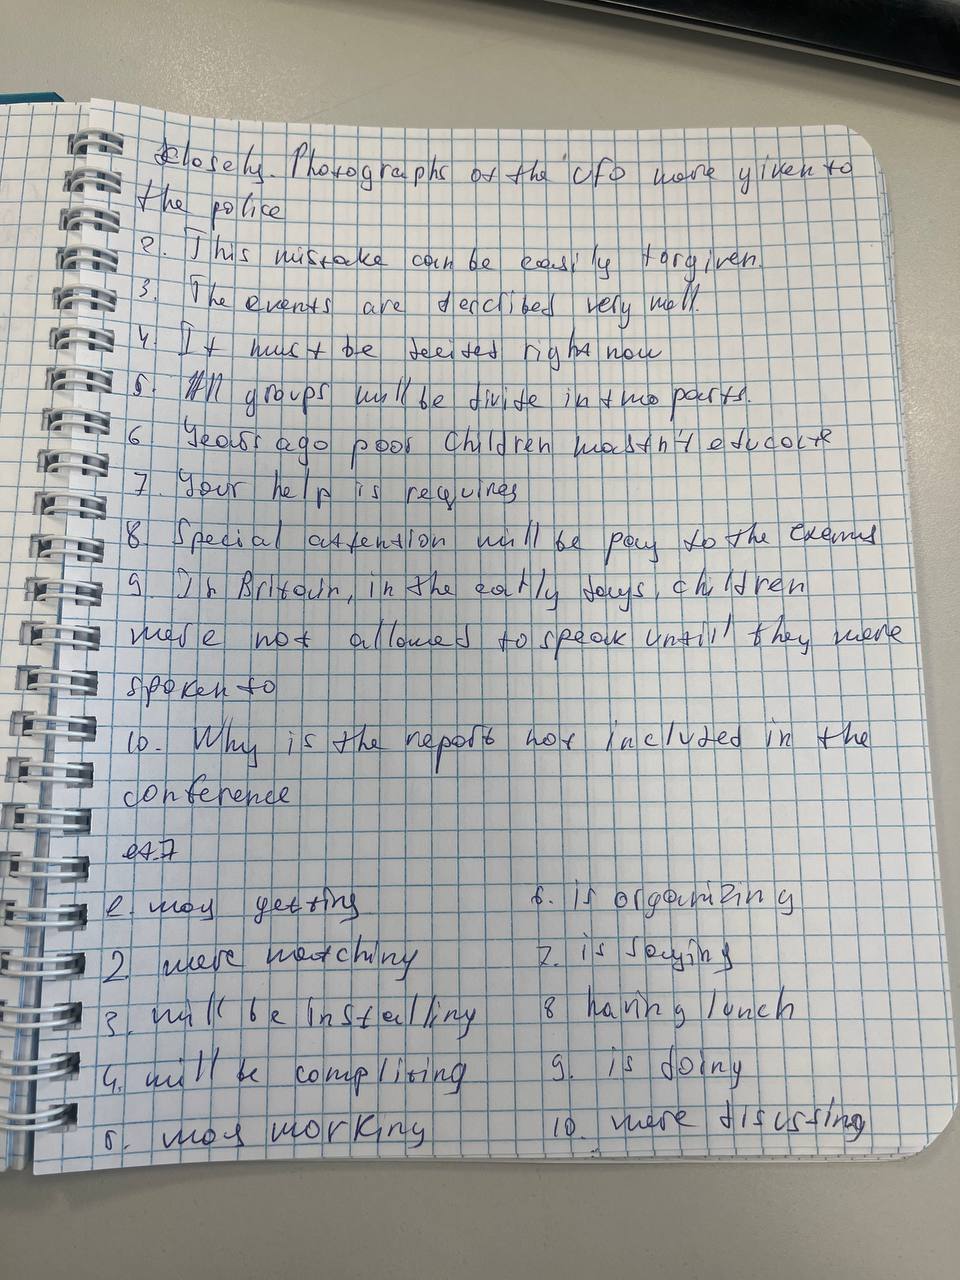 closely. Photographs of the UFO were given to
the police
2. This mistake can be easily forgiven.
3. The events are described very well.
4. It must be decited right now
5. All groups will be divide in two parts.
6 Years ago poor children wastn't educate
7. Your help is requires
8 Special attention will be pay to the exams
9. In Britain, in the early days, children
were not allowed to speak untill they were
spoken to
10. Why is the report not included in the
conference
ex.7
1. was getting
2. were watching
3. will be installing
4. will be compliting
5. was working
6. is organizing
7. is saying
8 having lunch
9. is doing
10. were discussing